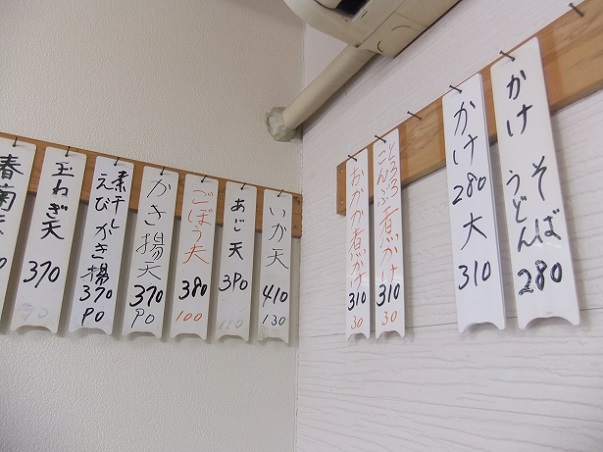 かけ
そば
うどん
280
かけ
280
大
310
とろろ
こんぶ煮かけ
310
30
おかか煮かけ
310
30
いか天
410
130
あじ天
390
110
ごぼう天
380
100
かき揚天
370
90
素干し
えびかき揚
370
90
玉ねぎ天
370
90
春菊天